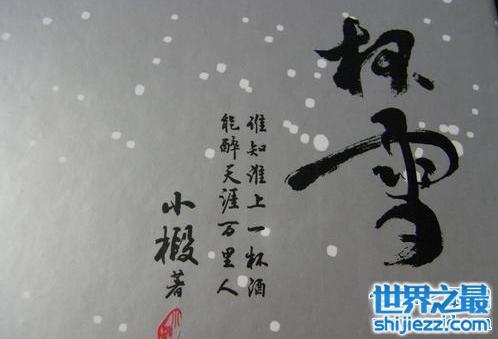 杯雪
谁知淮上一杯酒
能醉天涯万里人
小椴著
世界之最
shijiezz.com!